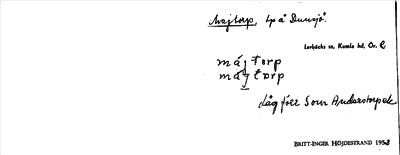 Majtorp, tp å Dunsjö.
Lerbäcks sn, Kumla hd, Ör. l
máj torp
máj torp
Låg förr Som Anderstorpek
BRITT-INGER HÖJDESTRAND 1958